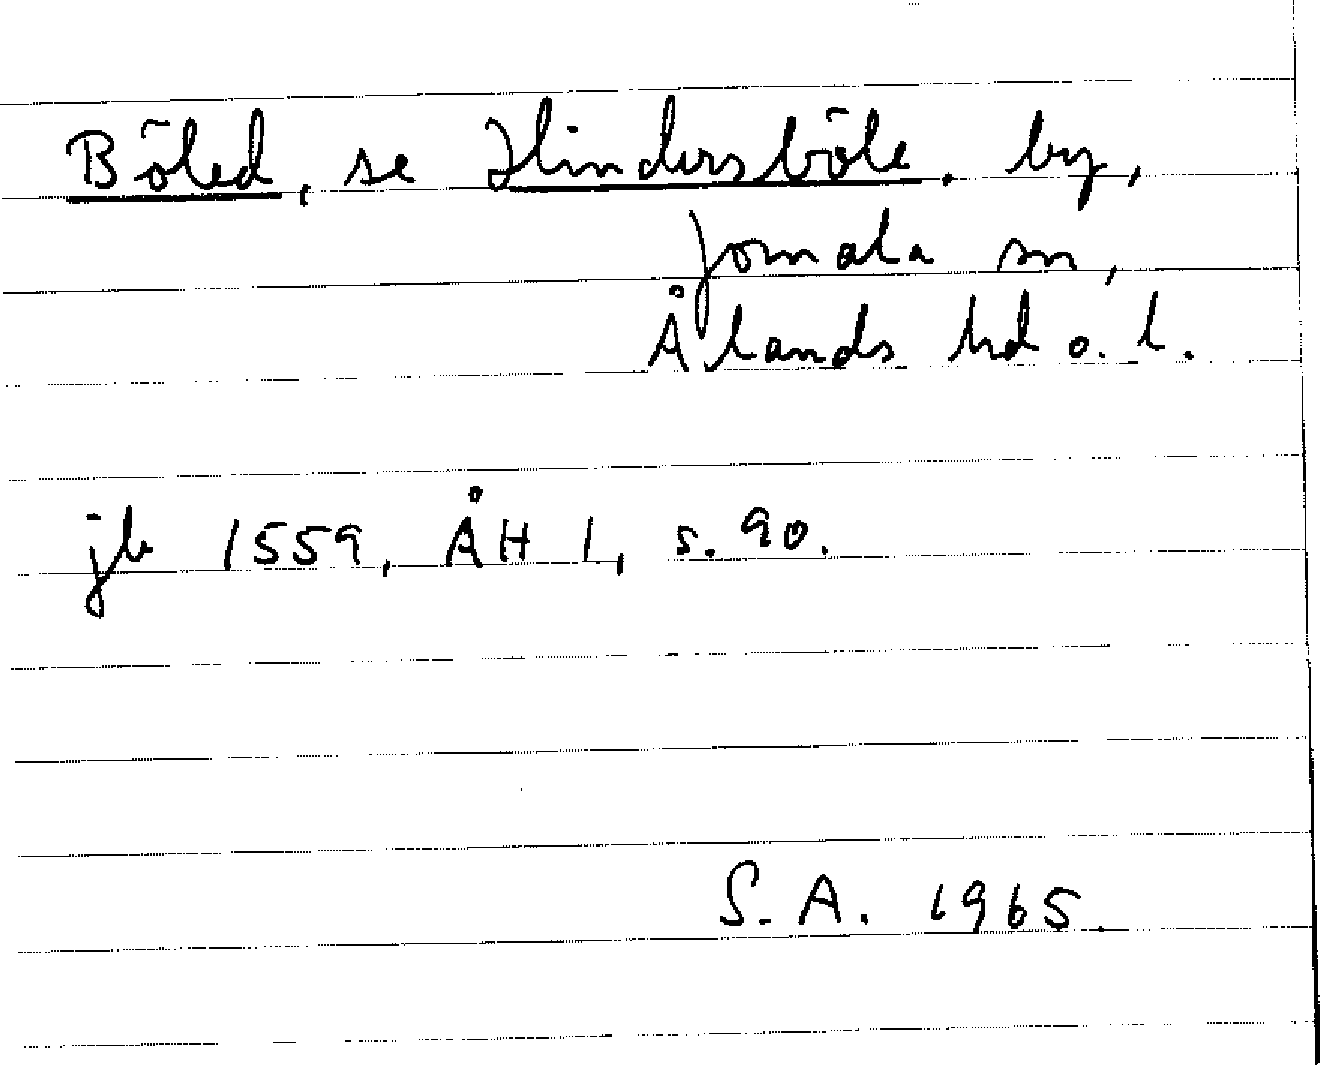 Böled, se Hindersböle, by,
Jomala sn,
Ålands hd o. l.
jb 1559, ÅH 1, s. 90.
S. A. 1965.